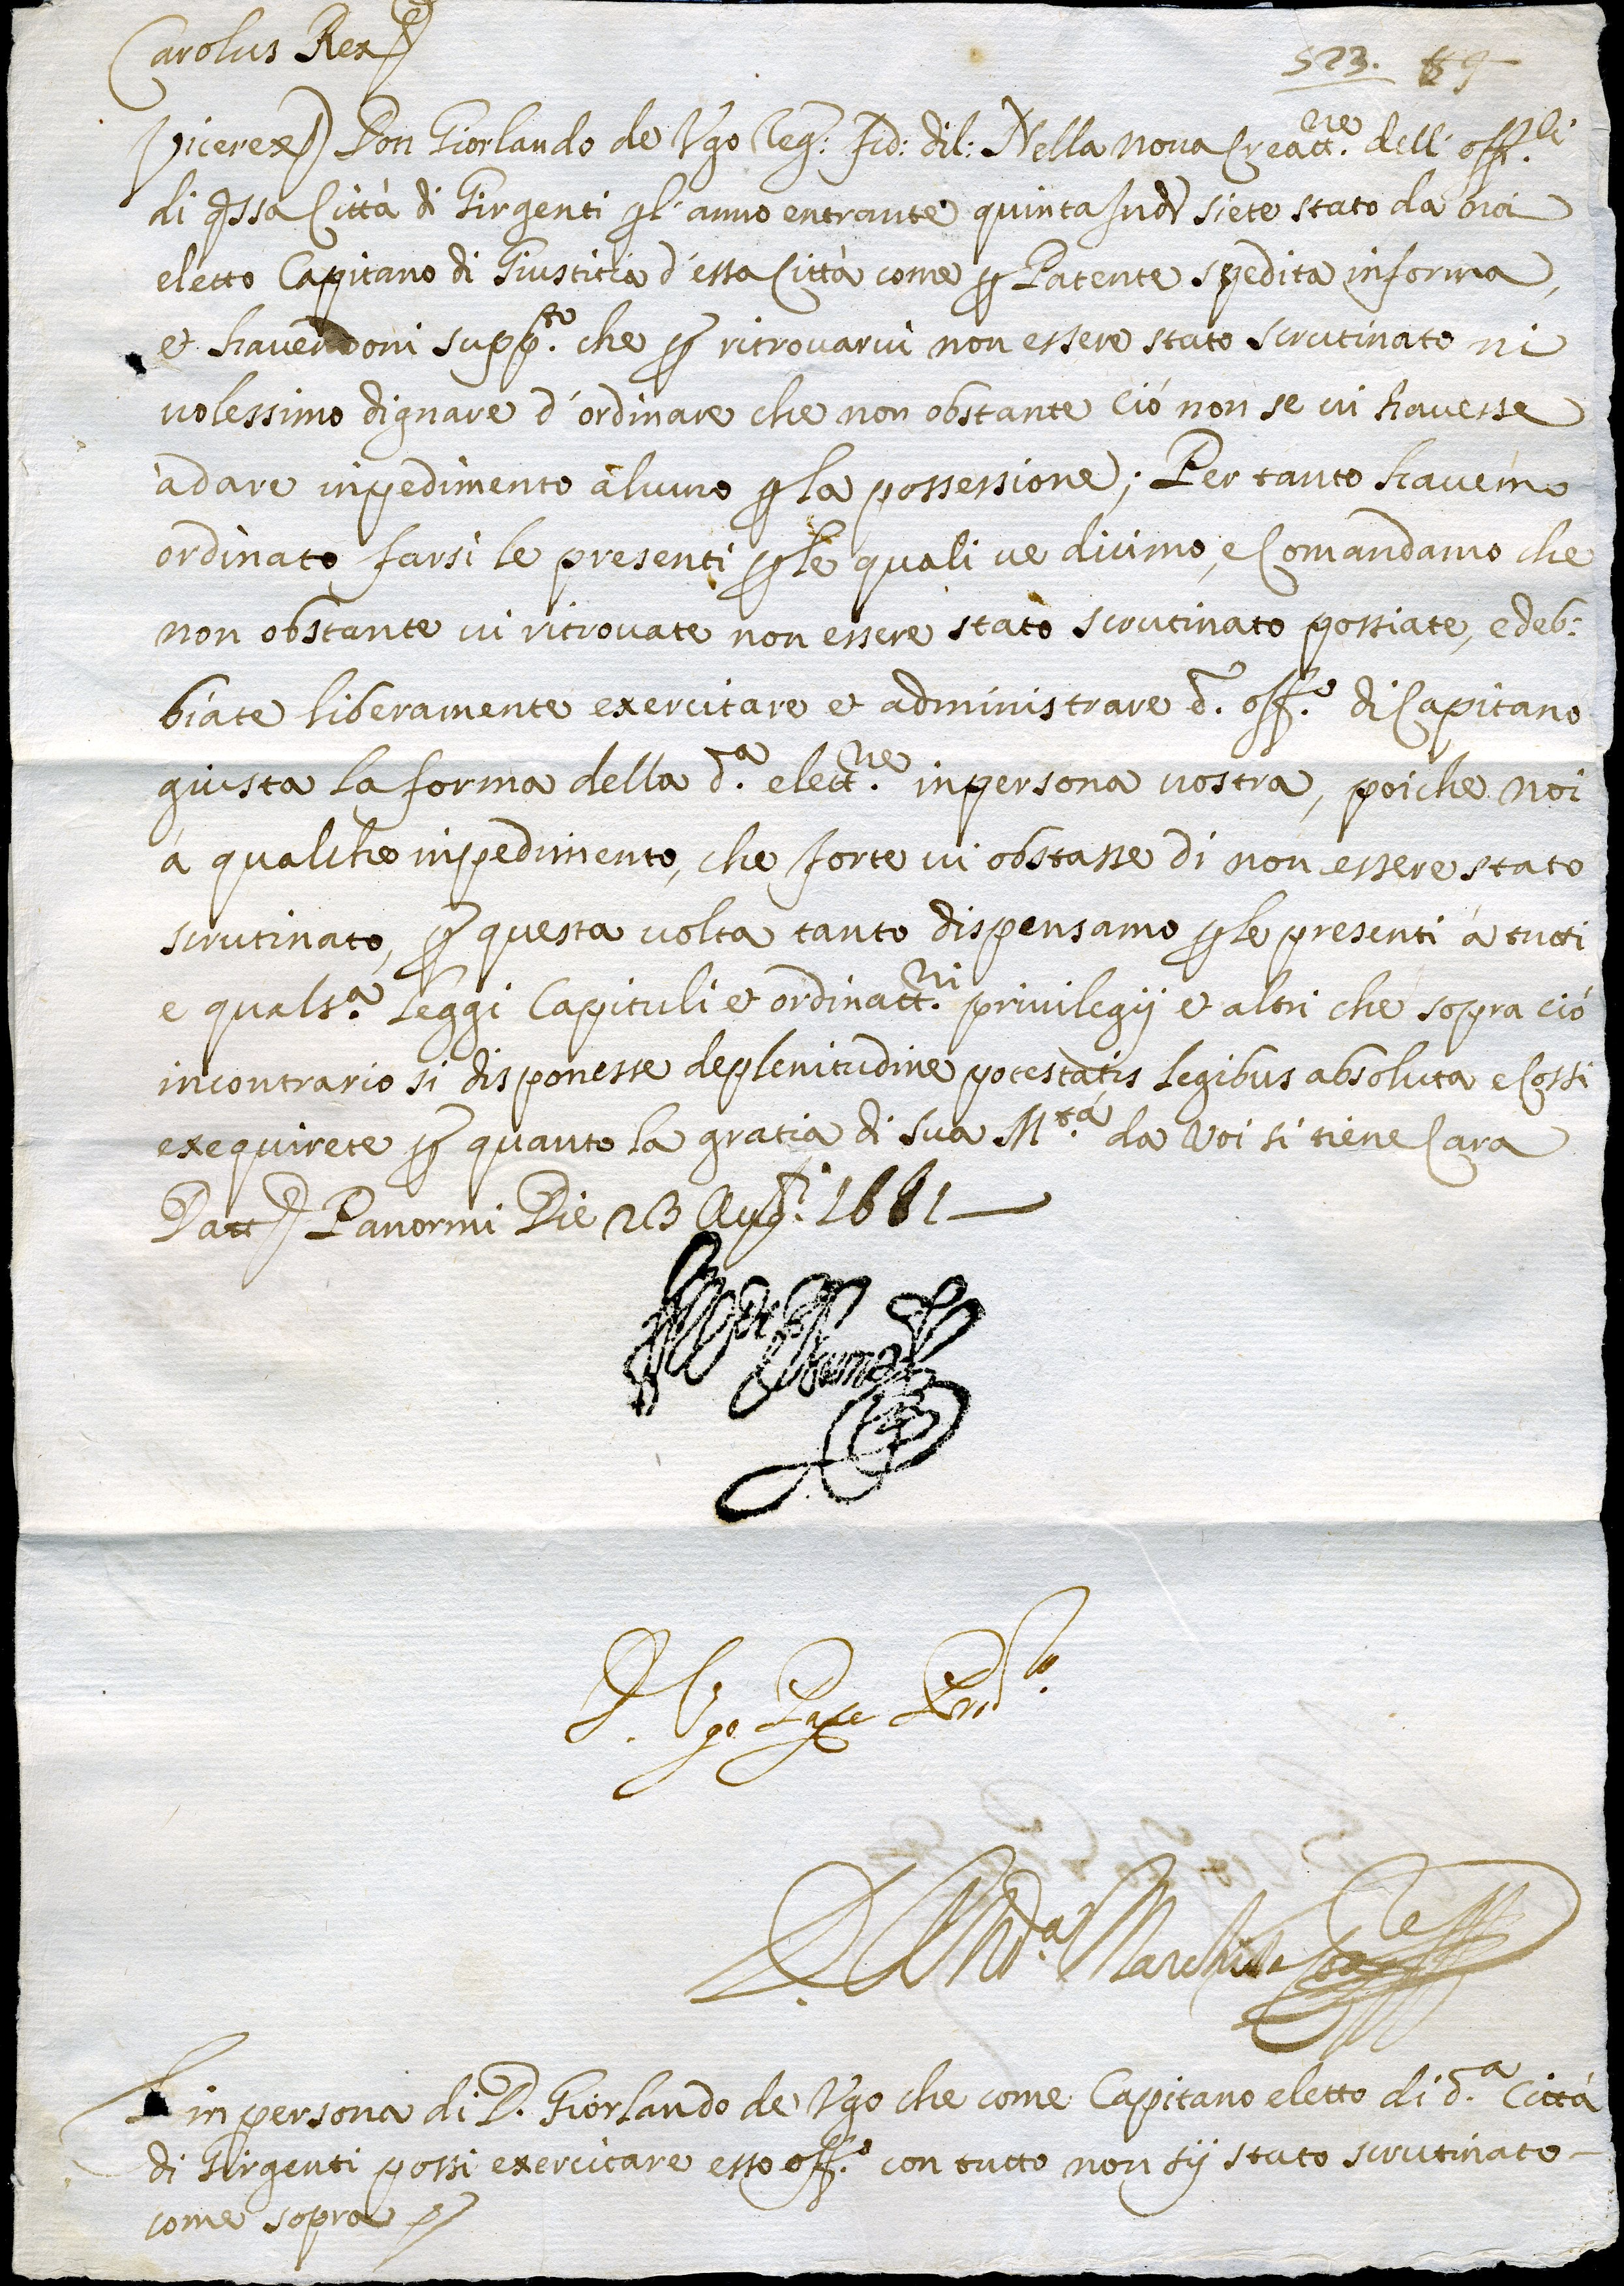 Carolus Rex
523.
Vicerex Don Giorlando de Ugo Reg: fid: dil: Nella nova Creatt.ne dell' off.li
di essa Città di Girgenti pl' anno entrante quinta Ind siete stato da noi
eletto Capitano di Giusticia d'essa Città come p Patente spedita in forma,
et havendoni supp.to che p ritrovarvi non essere stato scrutinato ni
volessimo dignare d'ordinare che non obstante Ció non se vi havesse
à dare inpedimento alcuno p la possessione; Per tanto havemo
ordinato farsi le presenti p le quali ve dicimo, e Comandamo che
non obstante vi ritrovate non essere stato scrutinato possiate, e deb:
biate liberamente exercitare et administrare d. off.o di Capitano
giusta la forma della d.a elett.ne in persona vostra, poiche noi
á qualche inpedimento, che forte vi obstasse di non essere stato
scrutinato, p questa volta tanto dispensamo p le presenti á tutti
e quals.a leggi Capituli et ordinatt.ni privilegij et altri che sopra ció
in contrario si disponesse de plenitudine potestatis legibus absoluta e Cossi
exequirete p quanto la gratia di sua M.tá da voi si tiene Cara
Datt Panormi Die 23 Aug.ti 1681
D. Ugo Pape
D. And.a Marchese
In persona di D. Giorlando de Ugo che come Capitano eletto di d.a Cittá
di Girgenti possi exercitare esso off.o con tutto non sij stato scrutinato
come sopra